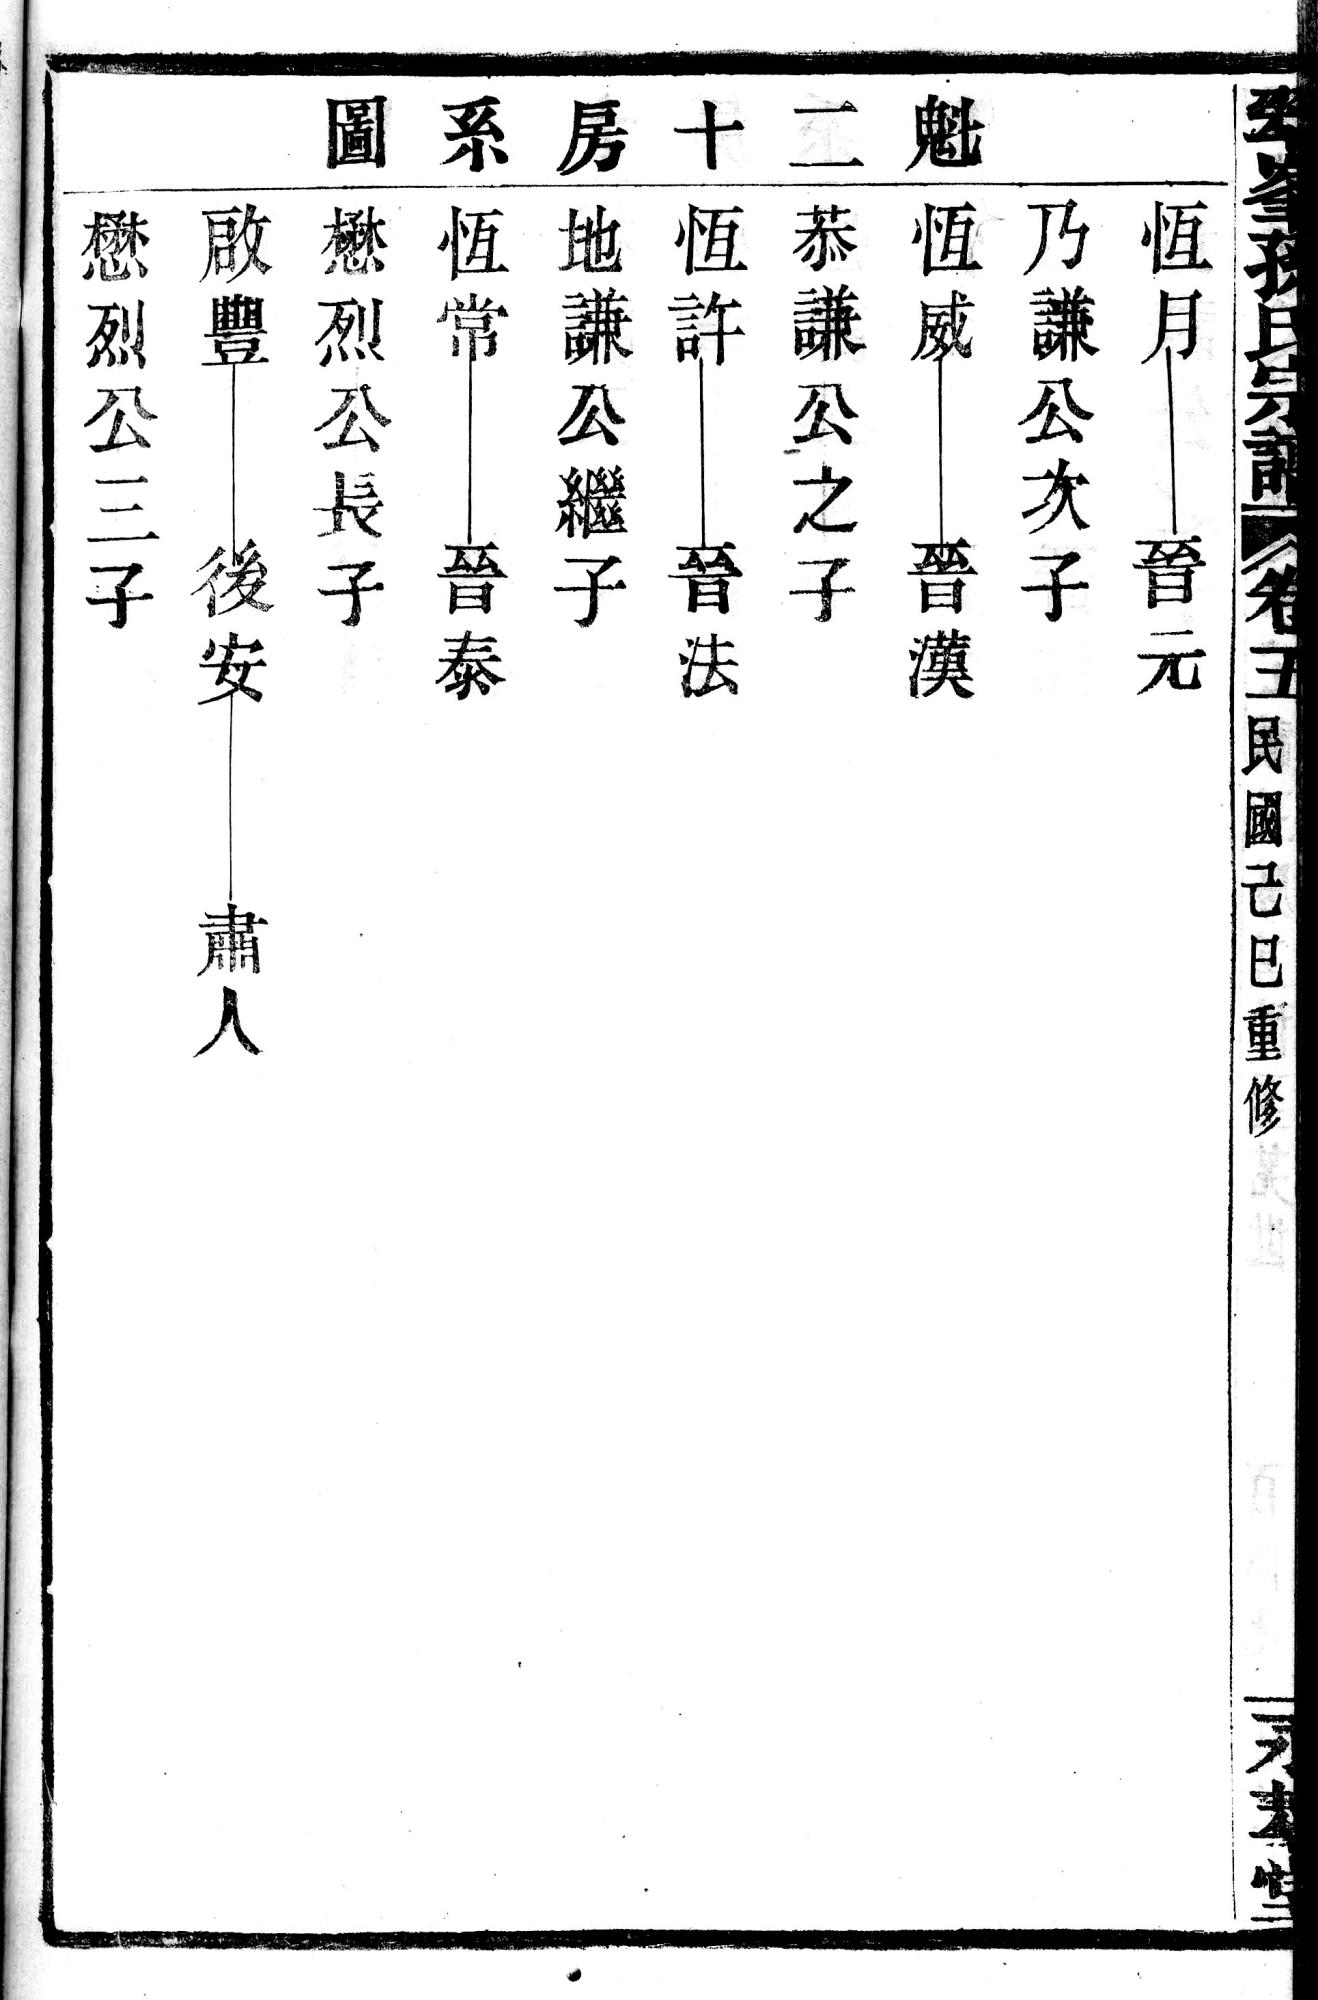 魁二十房系圖
恆月——晉元
乃謙公次子
恆威——晉漢
恭謙公之子
恆許——晉法
地謙公繼子
恆常——晉泰
懋烈公長子
啟豐——後安——肅人
懋烈公三子
峯孫氏宗譜
卷五
民國己巳重修
堂